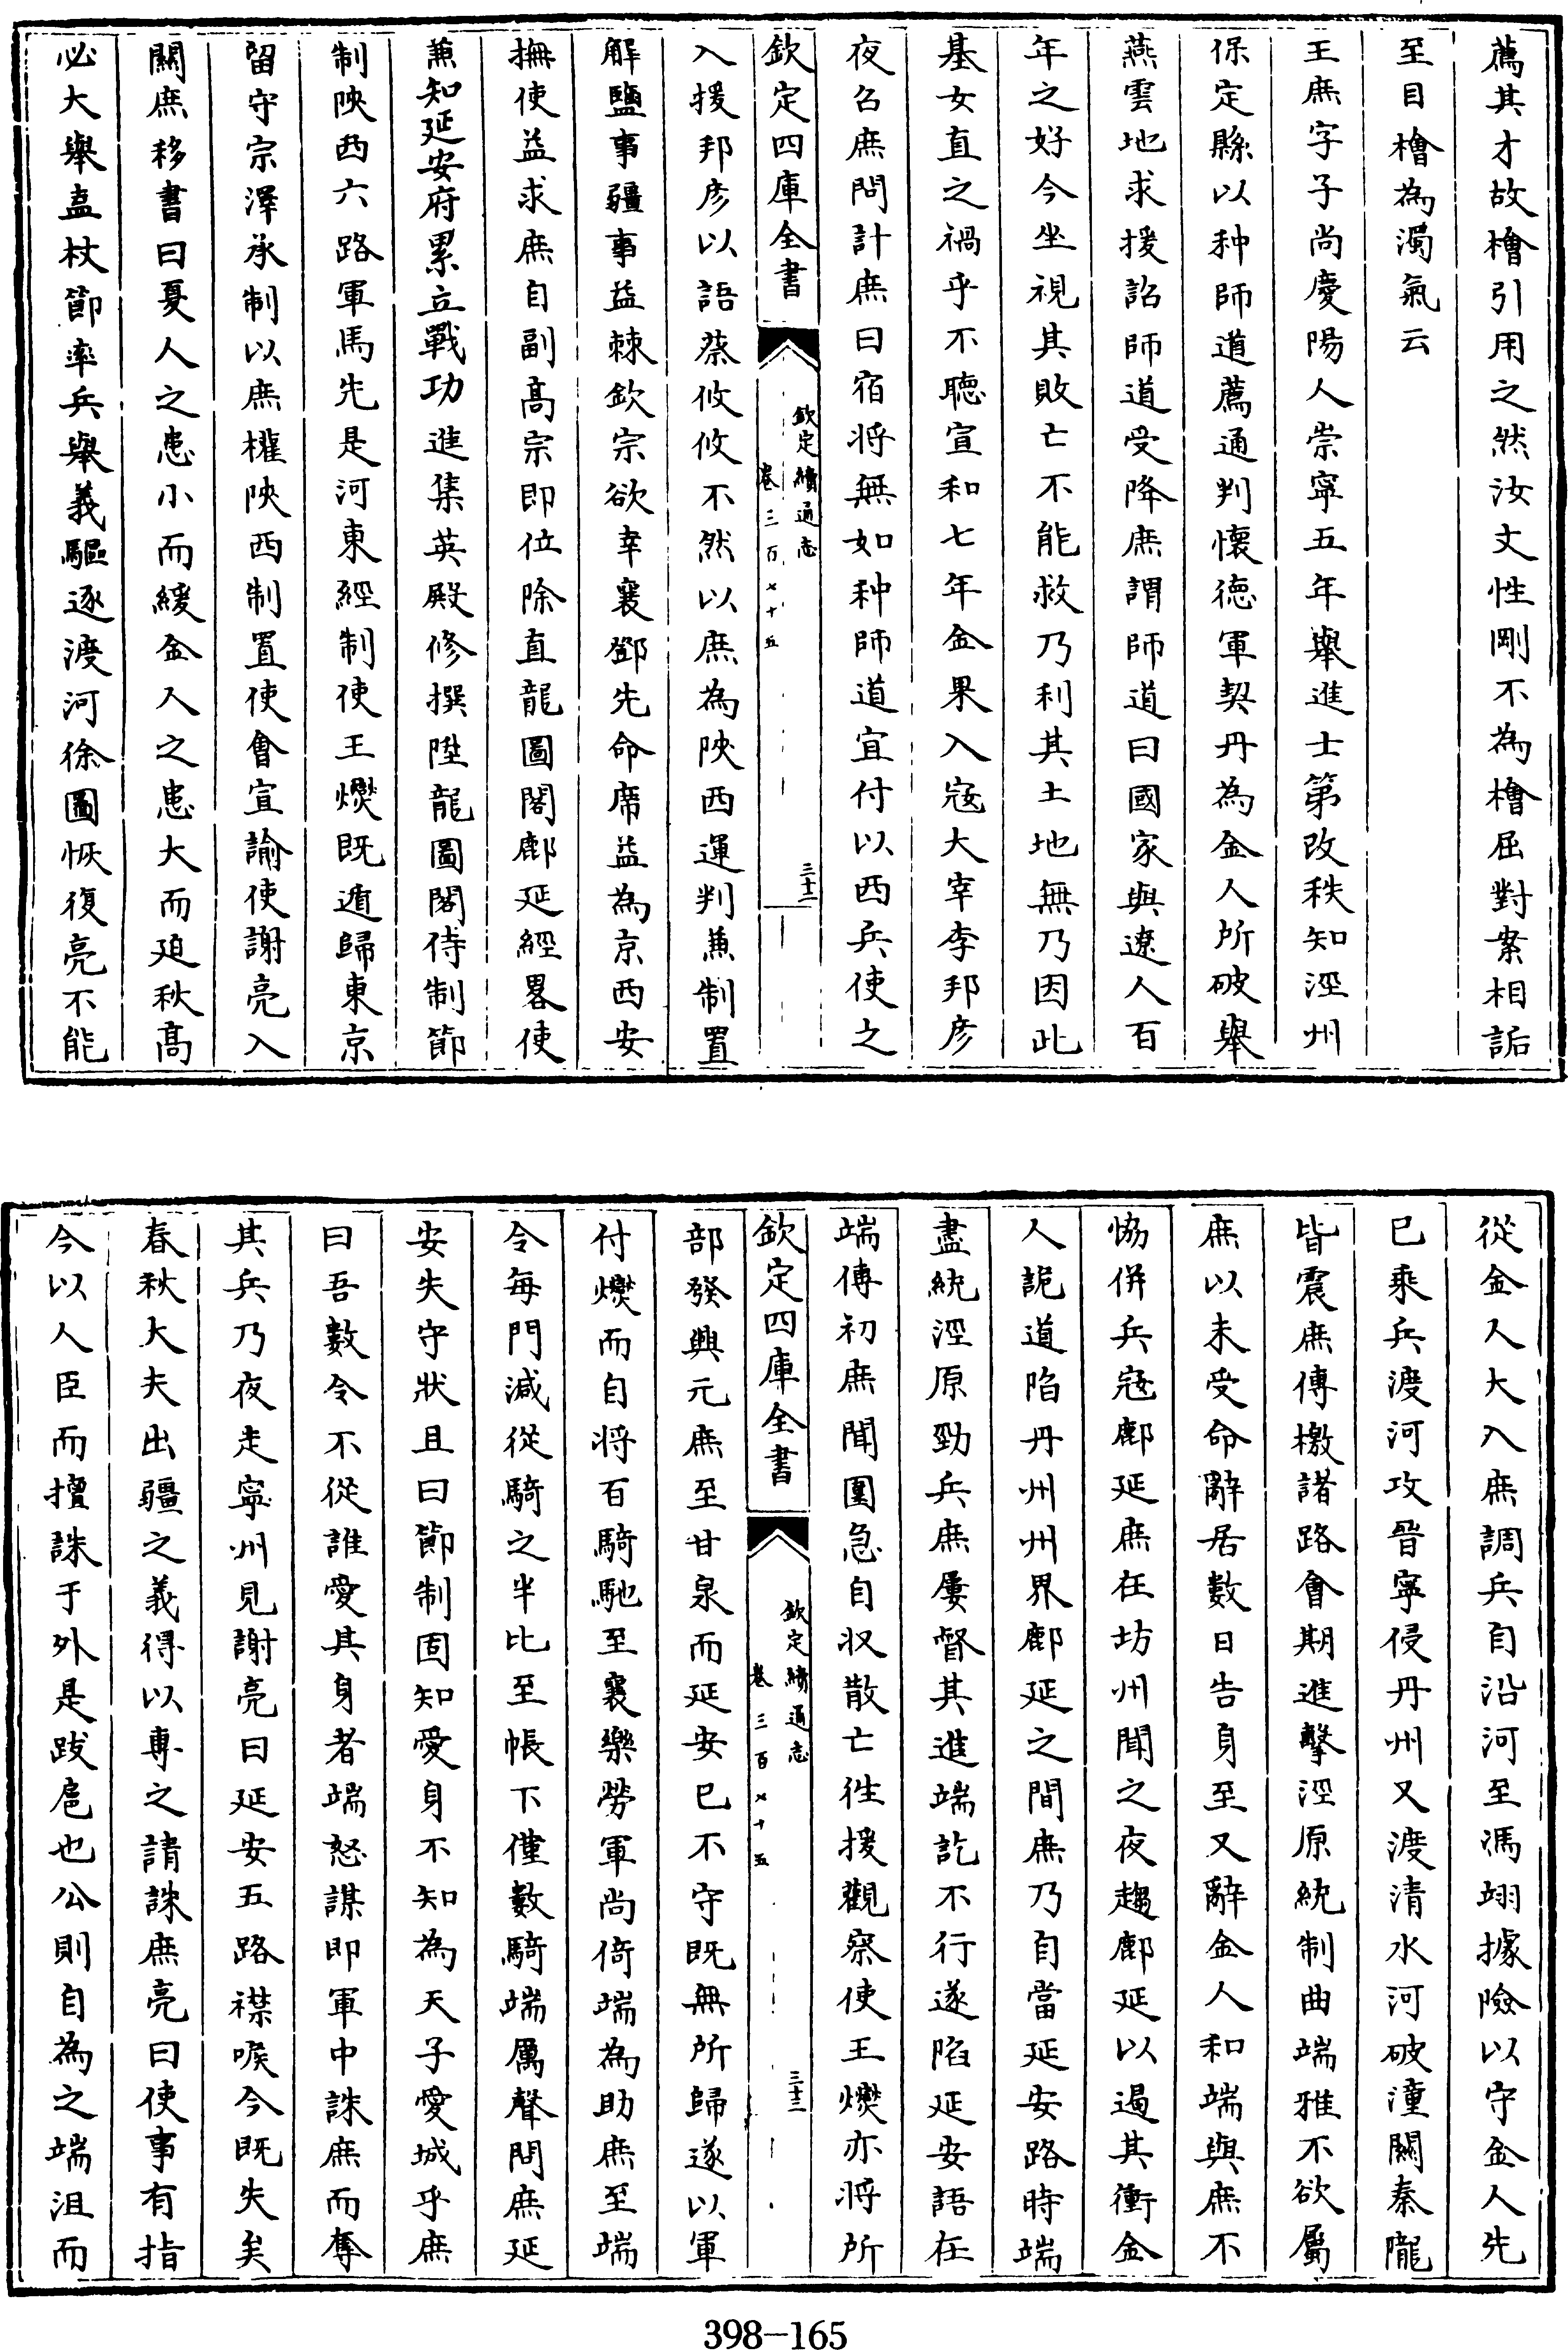 薦其才故檜引用之然汝文性剛不為檜屈對案相詬
至目檜為濁氣云
王庶字子尚慶陽人崇寧五年舉進士第改秩知涇州
保定縣以种師道薦通判懷德軍契丹為金人所破舉
燕雲地求援詔師道受降庶謂師道曰國家與遼人百
年之好今坐視其敗亡不能救乃利其土地無乃因此
基女直之禍乎不聽宣和七年金果入寇大宰李邦彥
夜召庶問計庶曰宿將無如种師道宜付以西兵使之
欽定四庫全書
欽定續通志
卷三百七十五
三十二
入援邦彥以語蔡攸攸不然以庶為陝西運判兼制置
解鹽事疆事益棘欽宗欲幸襄鄧先命席益為京西安
撫使益求庶自副高宗即位除直龍圖閣鄜延經畧使
兼知延安府累立戰功進集英殿修撰陞龍圖閣待制節
制陝西六路軍馬先是河東經制使王㸐既遁歸東京
留守宗澤承制以庶權陝西制置使會宣諭使謝亮入
關庶移書曰夏人之患小而緩金人之患大而廹秋高
必大舉盍杖節率兵舉義驅逐渡河徐圖恢復亮不能
從金人大入庶調兵自沿河至馮翊據險以守金人先
已乘兵渡河攻晉寧侵丹州又渡清水河破潼關秦隴
皆震庶傳檄諸路會期進擊涇原統制曲端雅不欲屬
庶以未受命辭居數日告身至又辭金人和端與庶不
恊併兵寇鄜延庶在坊州聞之夜趨鄜延以遏其衝金
人詭道陷丹州州界鄜延之間庶乃自當延安路時端
盡統涇原勁兵庶屢督其進端訖不行遂陷延安語在
端傳初庶聞圍急自収散亡徃援觀察使王㸐亦將所
欽定四庫全書
欽定續通志
卷三百七十五
三十三
部發興元庶至甘泉而延安已不守既無所歸遂以軍
付㸐而自將百騎馳至襄樂勞軍尚倚端為助庶至端
令每門減從騎之半比至帳下僅數騎端厲聲問庶延
安失守狀且曰節制固知愛身不知為天子愛城乎庶
曰吾數令不從誰愛其身者端怒謀即軍中誅庶而奪
其兵乃夜走寧州見謝亮曰延安五路襟喉今既失矣
春秋大夫出疆之義得以專之請誅庶亮曰使事有指
今以人臣而擅誅于外是跋扈也公則自為之端沮而
398-165